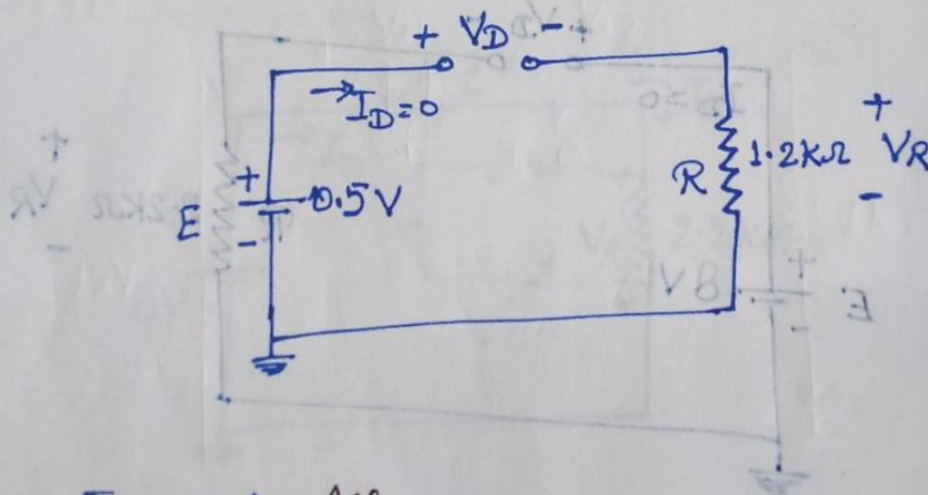 + VD -
→ ID=0
+
E
0.5V
-
R
1.2kΩ
+
VR
-